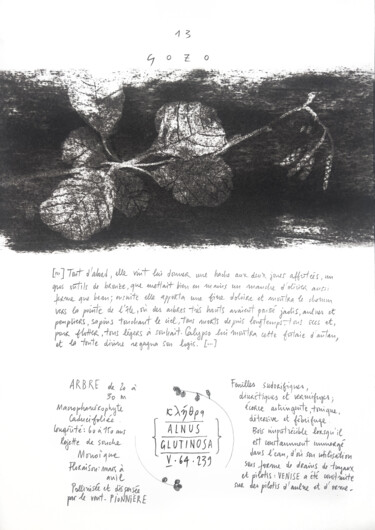 13
GOZO
[...] Tout d'abord, elle vint lui donner une hache aux deux joues affûtées, un
gros outil de bronze, que mettait bien en mains un manche d'olivier aussi
ferme que beau; ensuite elle apporta une fine doloire et montra le chemin
vers la pointe de l'île, où des arbres très hauts avaient poussé jadis, aulnes et
peupliers, sapins touchant le ciel, tous morts depuis longtemps, tous secs et,
pour flotter, tous légers à souhait. Calypso lui montra cette futaie d'antan,
et la toute divine regagna son logis. [...]
ARBRE de 20 à
30 m
Macrophanérophyte
Caducifoliée
Longévité: 60 à 110 ans
Rejette de souche
Monoïque
Floraison: mars à
avril
Pollinisée et dispersée
par le vent. PIONNIÈRE
κλήθρη
ALNUS
GLUTINOSA
V. 64. 239
Feuilles sudorifiques,
diurétiques et vermifuges,
écorce astringente, tonique,
détersive et fébrifuge
Bois imputrescible lorsqu'il
est constamment immergé
dans l'eau, d'où son utilisation
sous forme de drains de tuyaux
et pilotis: VENISE a été construite
sur des pilotis d'aulne et d'orme.